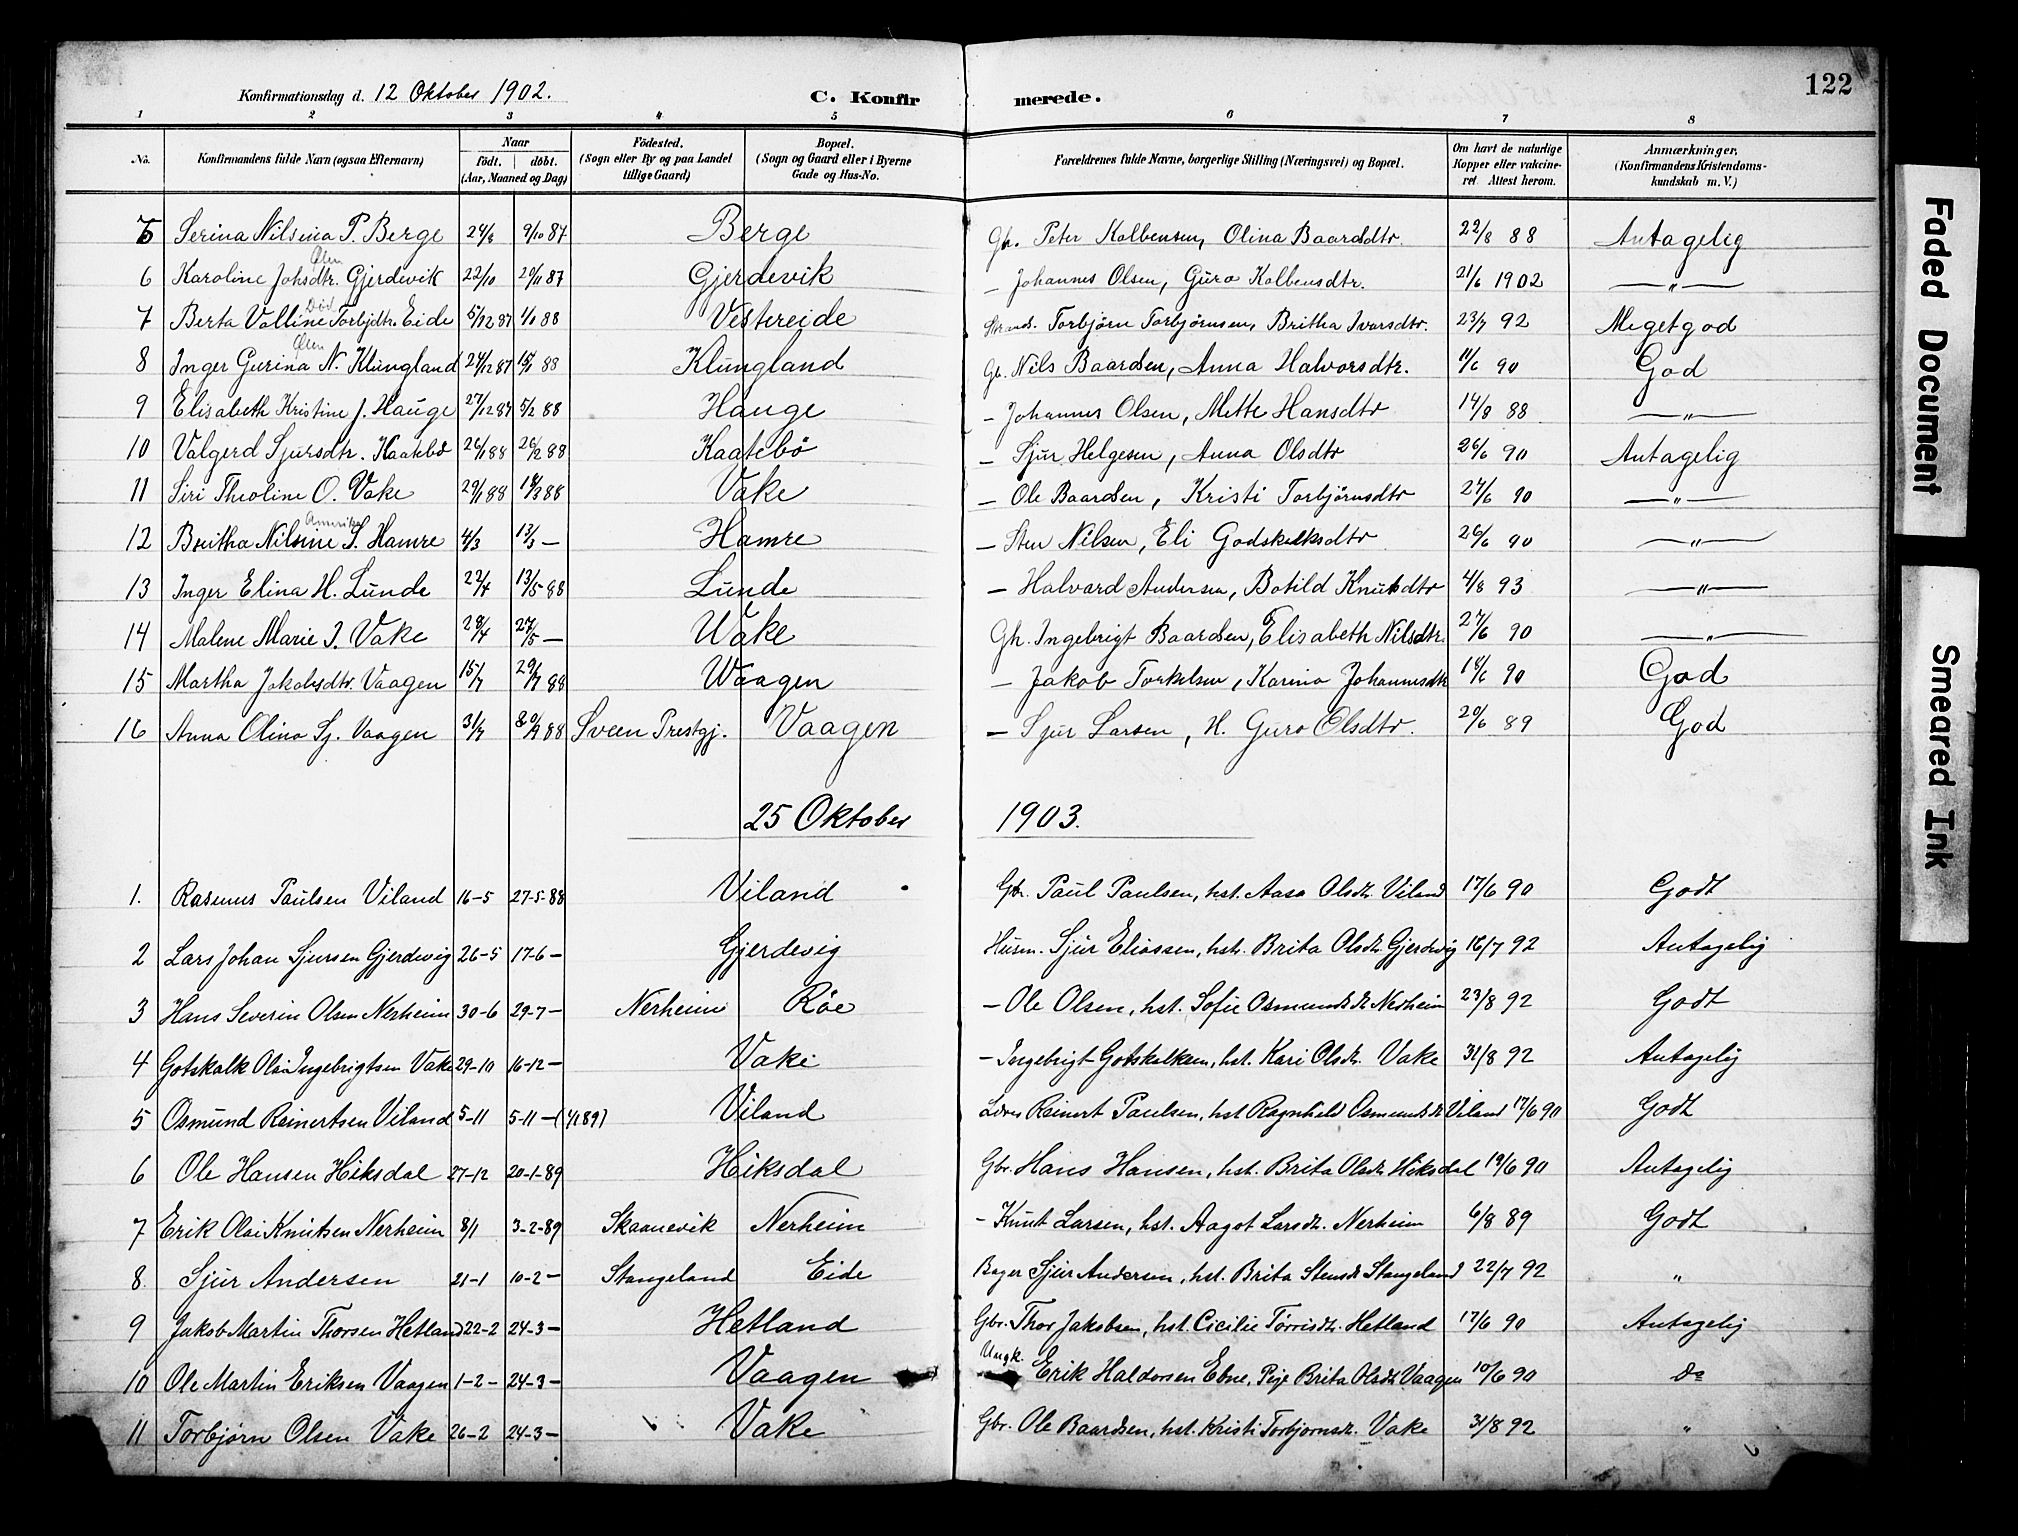 Konfirmationsdag d. 12 Oktober 1902. C. Konfirmerede. 122
1 2 3 4 5 6 7 8
No. Konfirmandens fulde Navn (ogsaa Efternavn) Naar födt. döbt. (Aar, Maaned og Dag) Födested. (Sogn eller By og paa Landet tillige Gaard) Bopæl. (Sogn og Gaard eller i Byerne Gade og Hus-No. Forældrenes fulde Navne, borgerlige Stilling (Næringsvei) og Bopæl. Om havt de naturlige Kopper eller vaccineret Attest herom. Anmærkninger, (Konfirmandens Kristendomskundskab m. V.)
5 Serina Nilsina P. Berge 24/8 9/10 87 Berge Gb. Peter Kolbensen, Olina Baardsdtr. 22/8 88 Antagelig
Ølen
6 Karoline Johsdtr. Gjerdevik 22/10 20/11 87 Gjerdevik — Johannes Olsen, Guro Kolbensdtr. 21/6 1902 —〃—
Död
7 Berta Valline Torbjdtr. Eide 5/12 87 1/1 88 Vestereide Strands. Torbjörn Torbjörnsen, Britha Ivarsdtr. 23/7 92 Megetgod
Ølen
8 Inger Gurina N. Klungland 24/12 87 15/1 88 Klungland Gb. Nils Baardsen, Anna Halvorsdtr. 11/6 90 God
9 Elisabeth Kristine J. Hauge 27/12 87 5/2 88 Hauge — Johannes Olsen, Mette Hansdtr 14/8 88 —〃—
10 Valgerd Sjursdtr. Kaatebö 26/1 88 26/2 88 Kaatebö — Sjur Helgesen, Anna Olsdtr 26/6 90 Antagelig
11 Siri Theoline O. Vake 29/1 88 18/3 88 Vake — Ole Baardsen, Kristi Torbjörnsdtr 27/6 90 —〃—
Amerika
12 Britha Nilsine S. Hamre 4/3 13/3 — Hamre — Sten Nilsen, Eli Godskalksdtr 26/6 90 —〃—
13 Inger Elina H. Lunde 22/4 13/5 88 Lunde — Halvard Andersen, Botild Knutsdtr 4/8 93 —〃—
14 Malene Marie I. Vake 28/4 27/5 — Wake Gb. Ingebrigt Baardsen, Elisabeth Nilsdtr. 27/6 90 —〃—
15 Martha Jakobsdtr. Vaagen 15/7 29/7 88 Waagen — Jakob Torkelsen, Karina Johannesdtr 18/6 90 God
16 Anna Olina Sj. Vaagen 31/7 88 Sveen Prestgj. Vaagen — Sjur Larsen, H. Guro Olsdtr. 20/6 89 God
25 Oktober 1903.
1. Rasmus Paulsen Viland 16-5 27-5-88 Viland Gbr. Paul Paulsen, hst. Aasa Olsdtr. Viland 17/6 90 Godt
2 Lars Johan Sjursen Gjerdevig 26-5 17-6- Gjerdevig Husm. Sjur Eliassen, hst. Brita Olsdtr. Gjerdevig 16/7 92 Antagelig
3 Hans Severin Olsen Nerheim 30-6 29-7- Nerheim Röe — Ole Olsen, hst. Sofie Osmundsdtr. Nerheim 23/8 92 Godt
4 Gotskalk Olai Ingebrigtsen Vake 29-10 16-12- Vake — Ingebrigt Gotskalksen, hst. Kari Olsdtr. Vake 31/8 92 Antagelig
5 Osmund Reinertsen Viland 5-11 5-11-(4/1 89) Viland Reinert Paulsen, hst Ragnhild Osmundsdtr Viland 17/6 90 Godt
6 Ole Hansen Hiksdal 27-12 20-1-89 Hiksdal Gbr. Hans Hansen, hst. Brita Olsdtr. Hiksdal 19/6 90 Antagelig
7 Erik Olai Knutsen Nerheim 8/1 3-2-89 Skaanevik Nerheim — Knut Larsen, hst. Aagot Larsdtr. Nerheim 6/8 89 Godt
8. Sjur Andersen 21-1 10-2- Stangeland Eide Bager Sjur Andersen, hst. Brita Stensdtr Stangeland 22/7 92 〃
9 Jakob Martin Thorsen Hetland 22-2 24-3- Hetland Gbr. Thor Jakobsen, hst. Cicilie Tørrisdtr. Hetland 17/6 90 Antagelig
10 Ole Martin Eriksen Vaagen 1-2- 24-3- Vaagen Ungk. Erik Haldorsen Ebne, Pige Brita Olsdtr Vaagen 10/6 90 do
11 Torbjørn Olsen Vake 26-2 24-3- Vake Gbr. Ole Baardsen, hst. Kristi Torbjornsdtr. Vake 31/8 92 〃
Faded Document
Smeared Ink